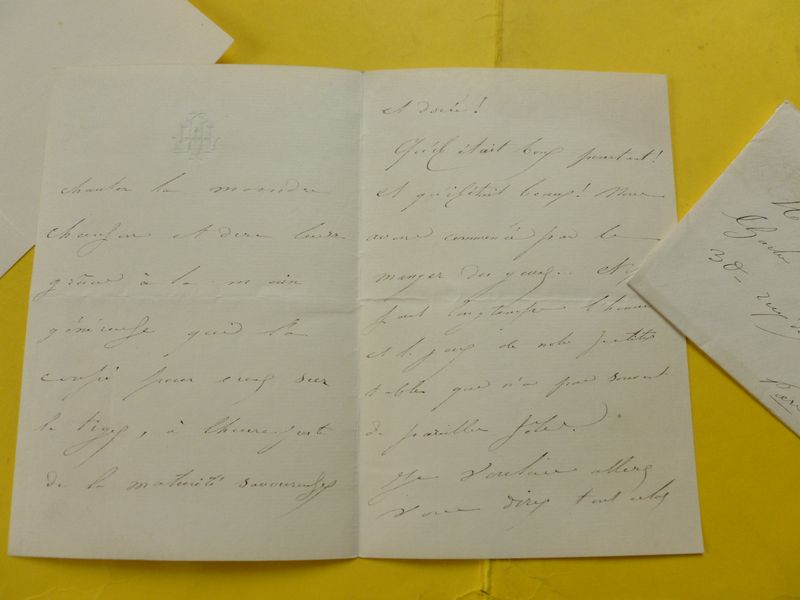 chanter la moindre
chanson et dire leurs
grâce à la main
générense qui l'a
coupé pour eux sur
la tige, à l'heure juste
de la maturité savoureuse
et dorée!
Qu'il était bon pourtant!
et qu'il était beau! Nous
avons commencé par le
manger des yeux...
fait longtemps l'honneur
et la joie de notre petite
table qui n'a pas souvent
de pareilles fêtes.
Je voulais aller
vous dire tout cela
Charles
30 - rue
Par